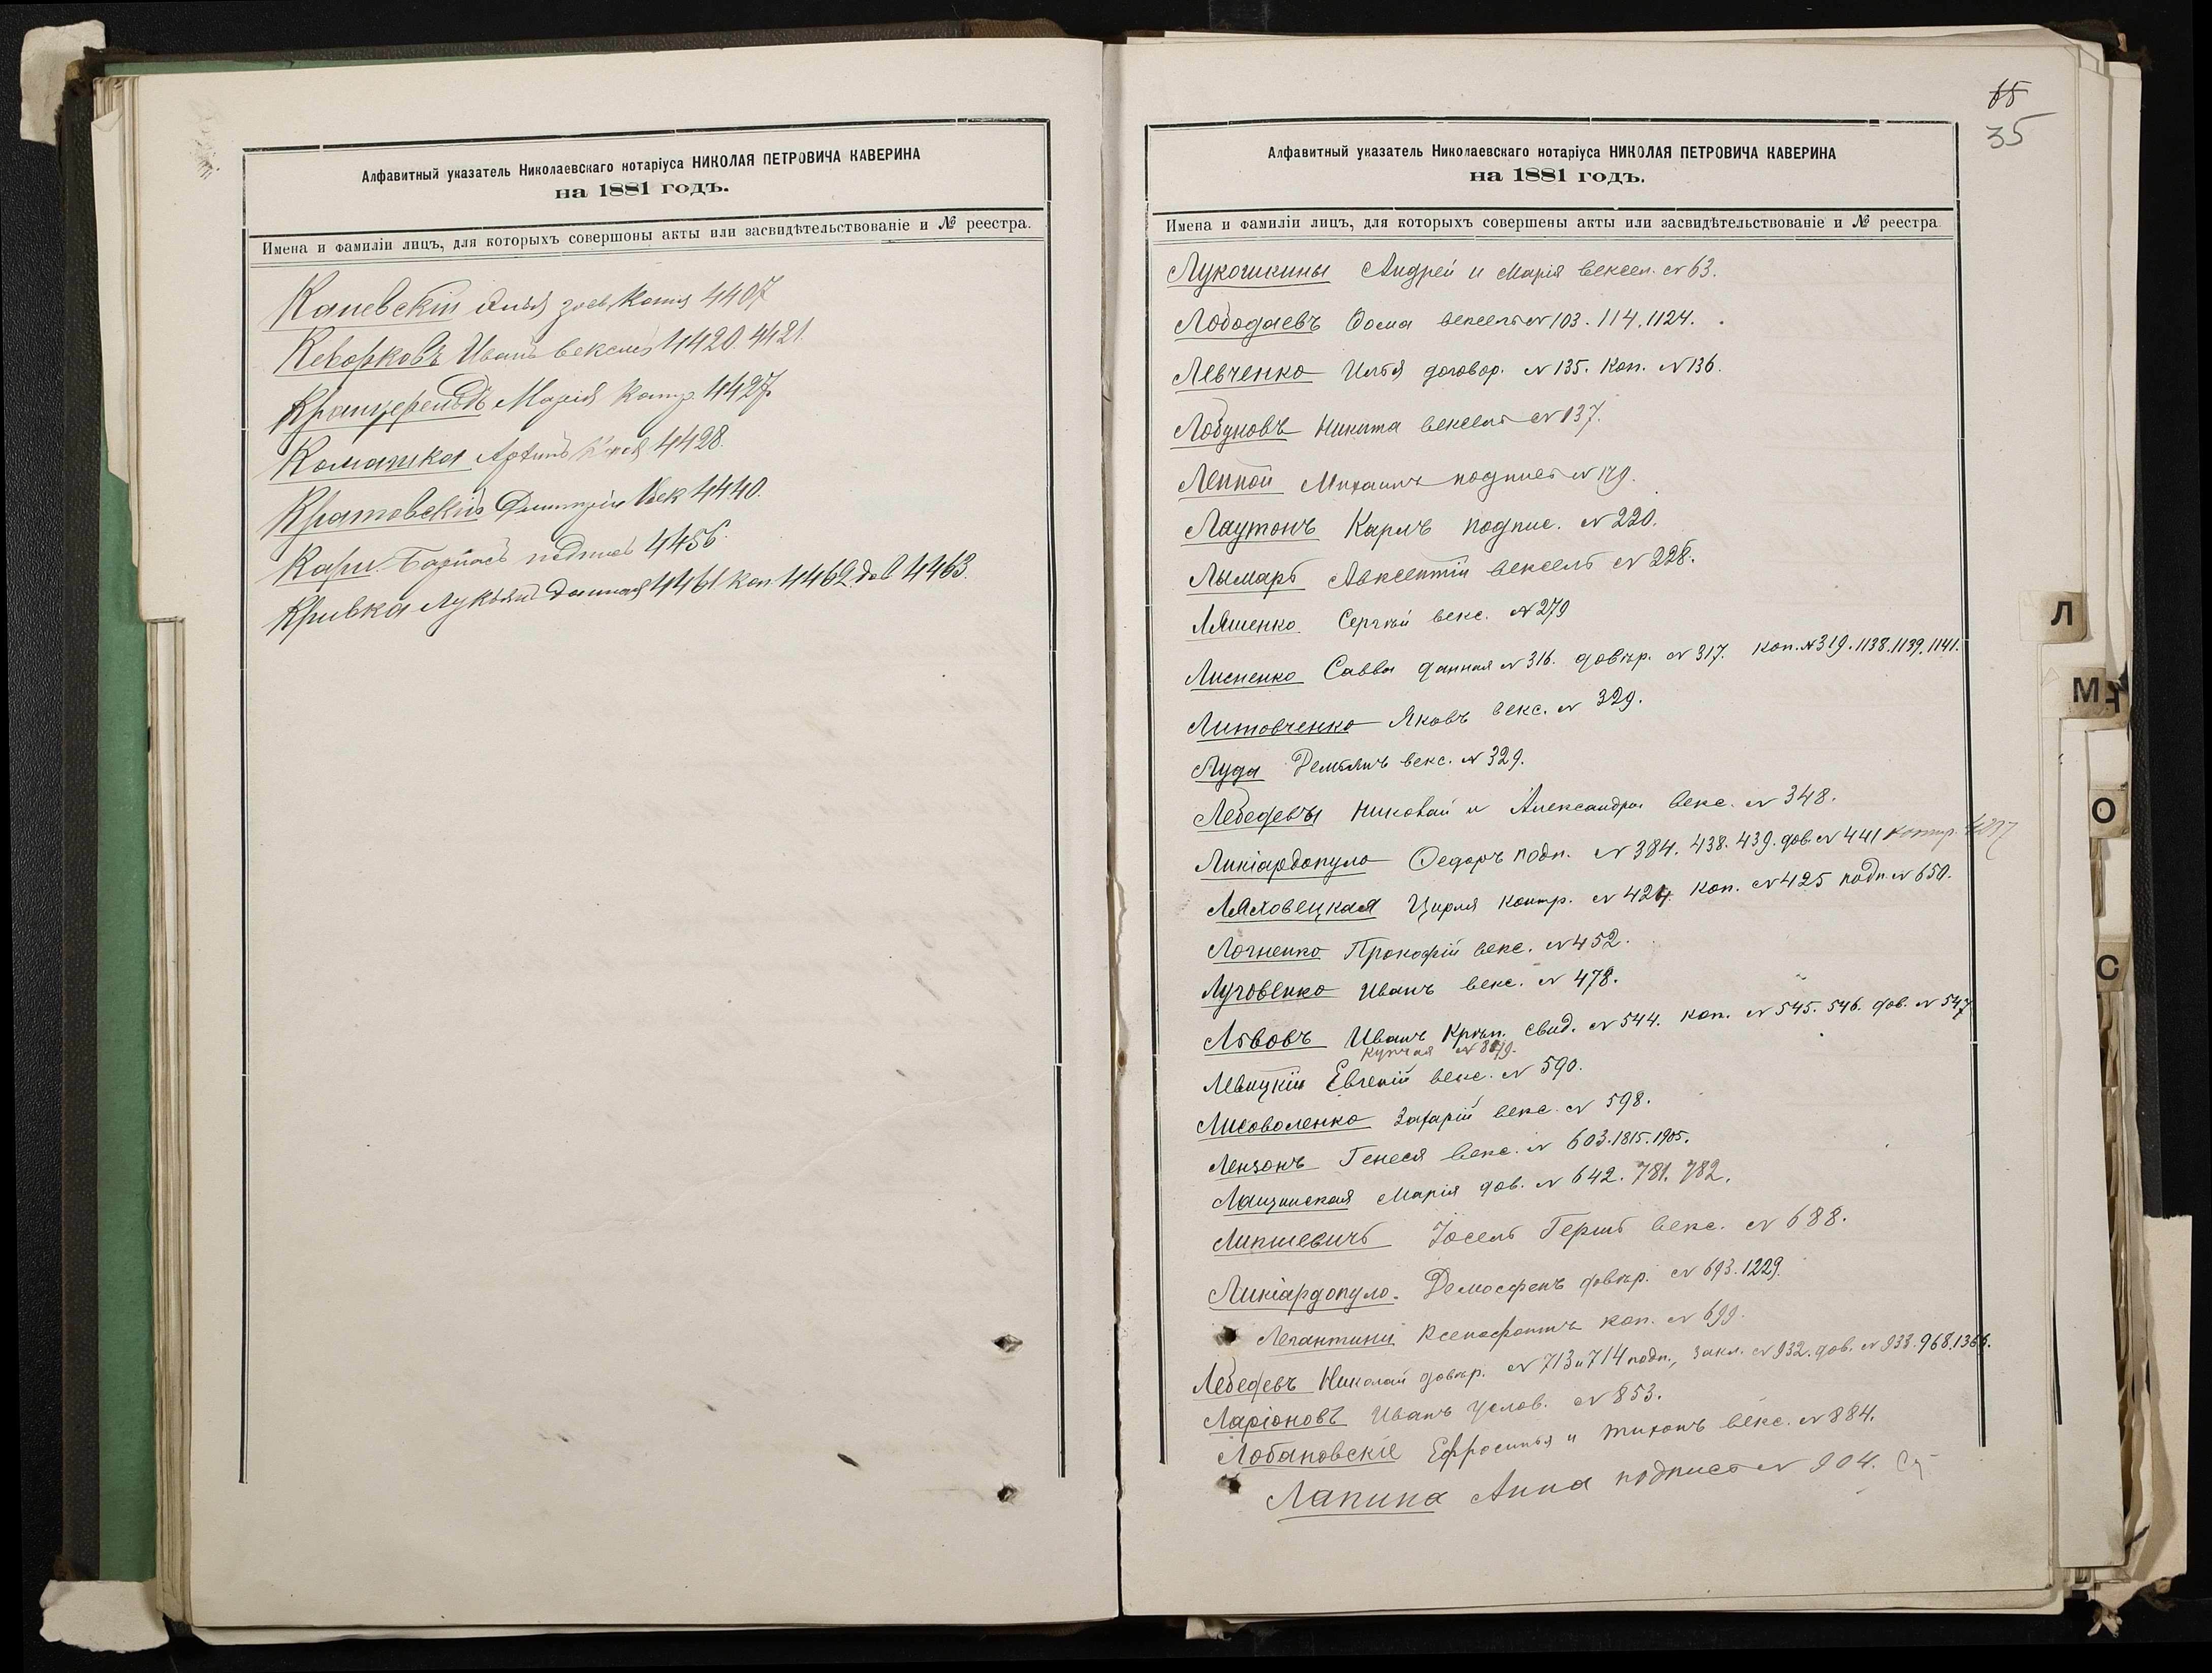 Алфавитный указатель Николаевскаго нотаріуса НИКОЛАЯ ПЕТРОВИЧА КАВЕРИНА
на 1881 годъ.
Имена и фамиліи лицъ, для которыхъ совершоны акты или засвидѣтельствованіе и № реестра.
Каневскій 4407
Кеворковъ Иванъ вексель 4420. 4421.
Марія контр. 4427.
4428.
Кратовскій Дмитрій Век 4440.
подпись 4456.
Кривка Лукьянъ данная 4461 коп. 4462. дов 4463.
65
35
Алфавитный указатель Николаевскаго нотаріуса НИКОЛАЯ ПЕТРОВИЧА КАВЕРИНА
на 1881 годъ.
Имена и фамиліи лицъ, для которыхъ совершены акты или засвидѣтельствованіе и № реестра.
Лукошкины Андрей и Марія вексел. № 63.
Лободаевъ Фома вексель № 103. 114. 1124.
Левченко Илья договор. № 135. Коп. № 136.
Лобуновъ Никита вексель № 137.
Леппой Михаилъ подпись № 179.
Лаутонъ Карлъ подпис. № 220.
Лымарь Авксентій вексель № 228.
Ляшенко Сергѣй векс. № 279
Лисненко Савва данная № 316. довѣр. № 317. коп. № 319. 1138. 1139. 1141.
Литовченко Яковъ векс. № 329.
Луда Демьянъ векс. № 329.
Лебедевы Николай и Александра векс. № 348.
Ликіардопуло Ѳедоръ подп. № 384. 438. 439. дов. № 441 контр.
Ляховецкая Цирля контр. № 424. коп. № 425 подп. № 650.
Логненко Прокофій векс. № 452.
Луговенко Иванъ векс. № 478.
Львовъ Иванъ Крѣп. свид. № 544. коп. № 545. 546. дов. № 547
купчая
Левицкій Евгеній векс. № 590.
Лисоволенко Захарій векс. № 598.
Лензонъ Генеся векс. № 603. 1815. 1905.
Лащинская Марія дов. № 642. 781. 782.
Липшевичъ Іосель Гершъ векс. № 688.
Ликіардопуло. Демосфенъ довѣр. № 693. 1229.
Легантини Ксенофонтъ коп. № 699.
Лебедевъ Николай довѣр. № 713 и 714 подп., закл. № 932. дов. № 933. 968. 1366.
Ларіоновъ Иванъ Услов. № 853.
Лобановскіе Ефросинья и Тихонъ векс. № 884.
Лапина Анна подпись № 904.
Л
М
О
С